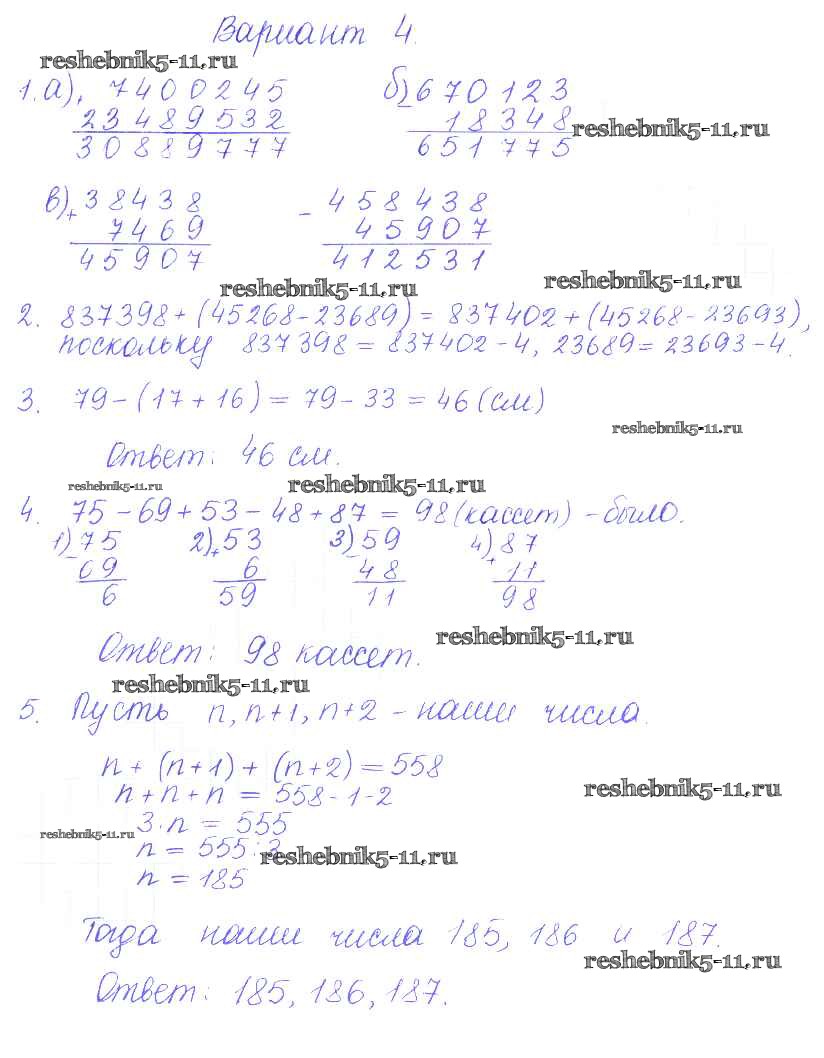 Вариант 4.
reshebnik5-11.ru
1. а) + 7400245 б) - 670123
23489532 18348
reshebnik5-11.ru
30889777 651775
в) + 38438 - 458438
7469 45907
45907 412531
reshebnik5-11.ru reshebnik5-11.ru
2. 837398 + (45268 - 23689) = 837402 + (45268 - 23693),
поскольку 837398 = 837402 - 4, 23689 = 23693 - 4.
3. 79 - (17 + 16) = 79 - 33 = 46 (см)
reshebnik5-11.ru
Ответ: 46 см.
reshebnik5-11.ru reshebnik5-11.ru
4. 75 - 69 + 53 - 48 + 87 = 98 (кассет) - было.
1) - 75 2) + 53 3) - 59 4) + 87
69 6 48 11
6 59 11 98
reshebnik5-11.ru
Ответ: 98 кассет.
reshebnik5-11.ru
5. Пусть n, n+1, n+2 - наши числа.
n + (n+1) + (n+2) = 558
reshebnik5-11.ru
n + n + n = 558 - 1 - 2
3 · n = 555
reshebnik5-11.ru
n = 555 : 3
reshebnik5-11.ru
n = 185
Тогда наши числа 185, 186 и 187.
reshebnik5-11.ru
Ответ: 185, 186, 187.